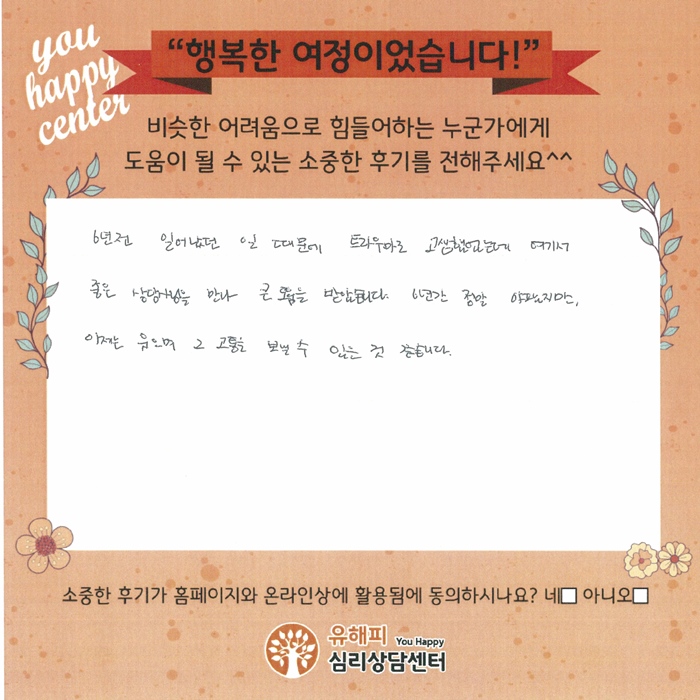 you
happy
center
“행복한 여정이었습니다!”
비슷한 어려움으로 힘들어하는 누군가에게
도움이 될 수 있는 소중한 후기를 전해주세요^^
6년전 일어났던 일 때문에 트라우마로 고생했었는데 여기서
좋은 상담사님을 만나 큰 도움을 받았습니다. 6년간 정말 아팠지만,
이제는 웃으며 그 고통을 보낼 수 있는 것 같습니다.
소중한 후기가 홈페이지와 온라인상에 활용됨에 동의하시나요? 네□ 아니오□
유해피 You Happy
심리상담센터